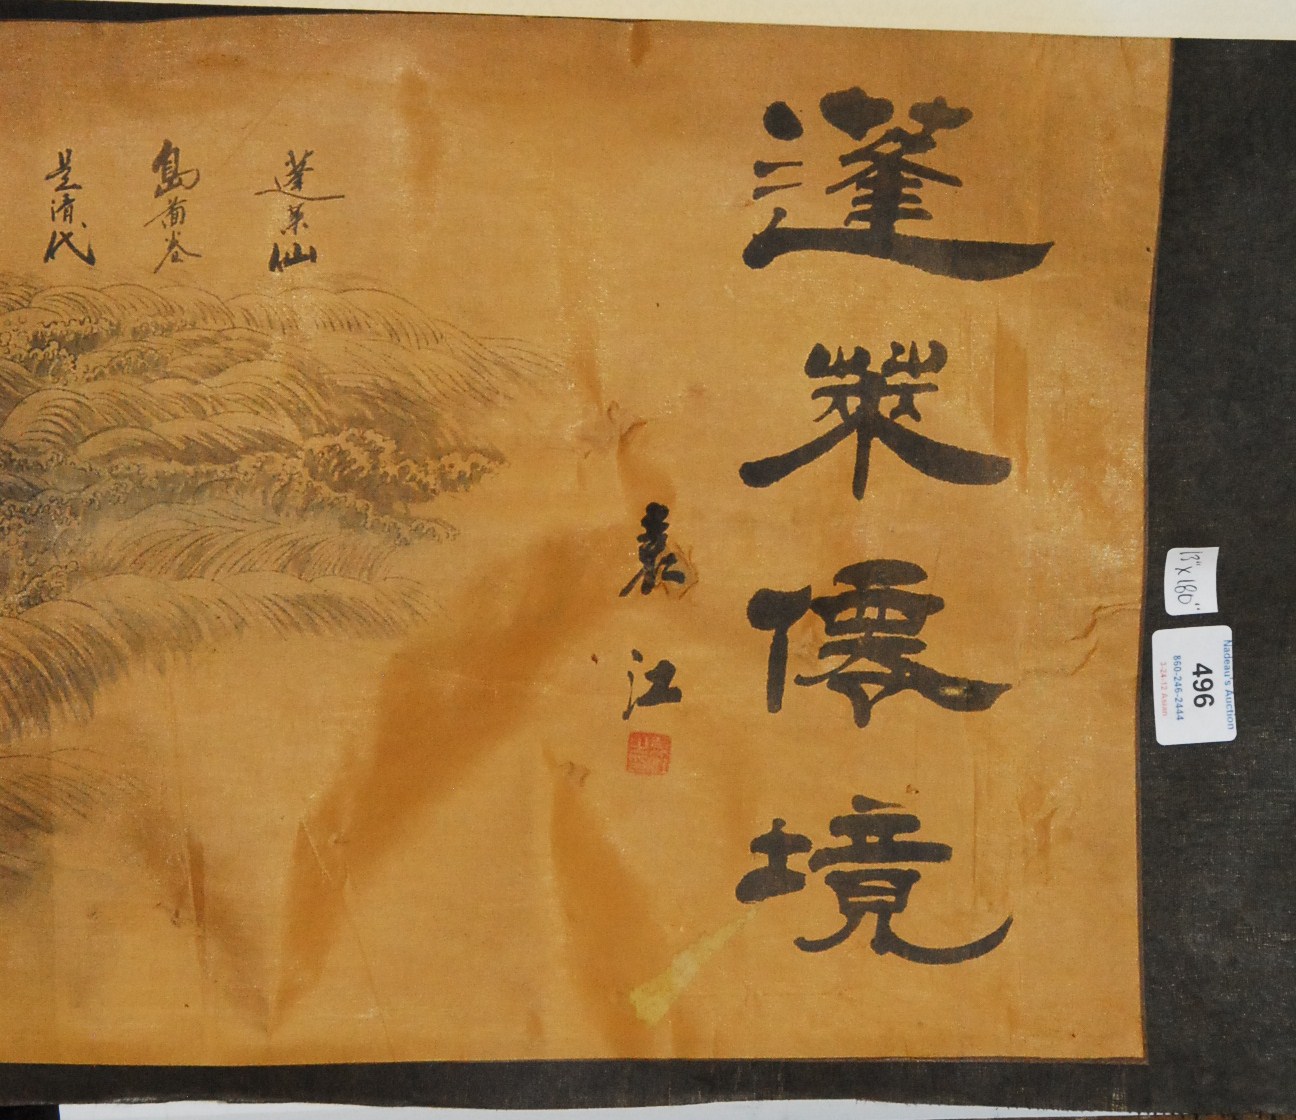 蓬萊僊境
袁江
蓬莱仙
島啚卷
是清代
13" X 180"
Nadeau's Auction
496
860-246-2444
3-24-12 Asian